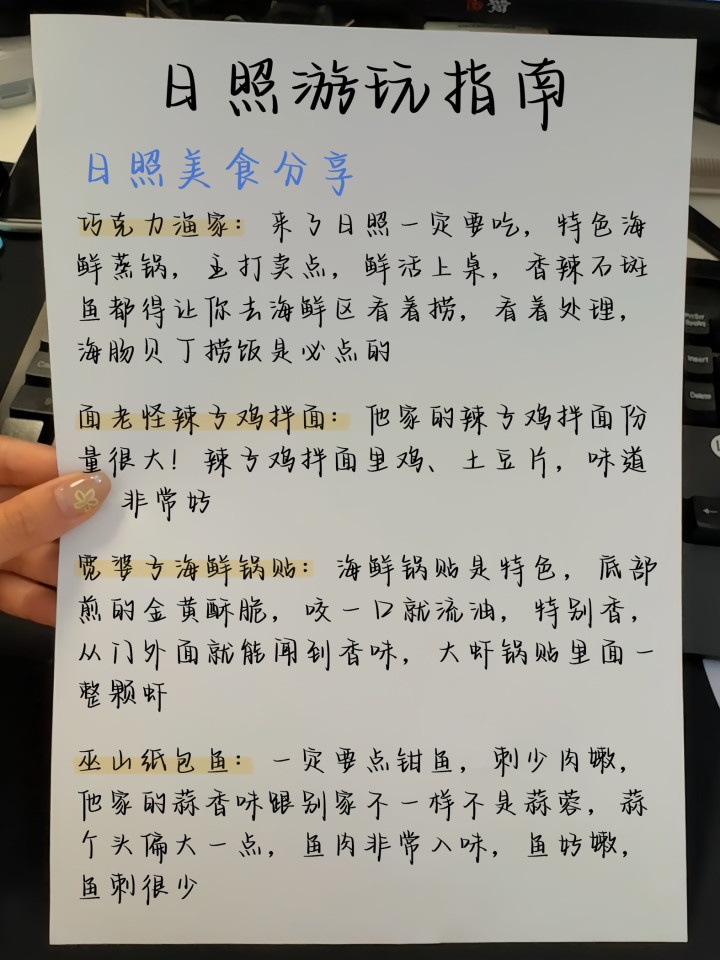 日照游玩指南
日照美食分享
巧克力渔家：来了日照一定要吃，特色海
鲜蒸锅，主打卖点，鲜活上桌，香辣石斑
鱼都得让你去海鲜区看着捞，看着处理，
海肠贝丁捞饭是必点的
面老怪辣子鸡拌面：他家的辣子鸡拌面份
量很大！辣子鸡拌面里鸡、土豆片，味道
非常好
宽婆子海鲜锅贴：海鲜锅贴是特色，底部
煎的金黄酥脆，咬一口就流油，特别香，
从门外面就能闻到香味，大虾锅贴里面一
整颗虾
巫山纸包鱼：一定要点钳鱼，刺少肉嫩，
他家的蒜香味跟别家不一样不是蒜蓉，蒜
个头偏大一点，鱼肉非常入味，鱼好嫩，
鱼刺很少
Insert
Delete